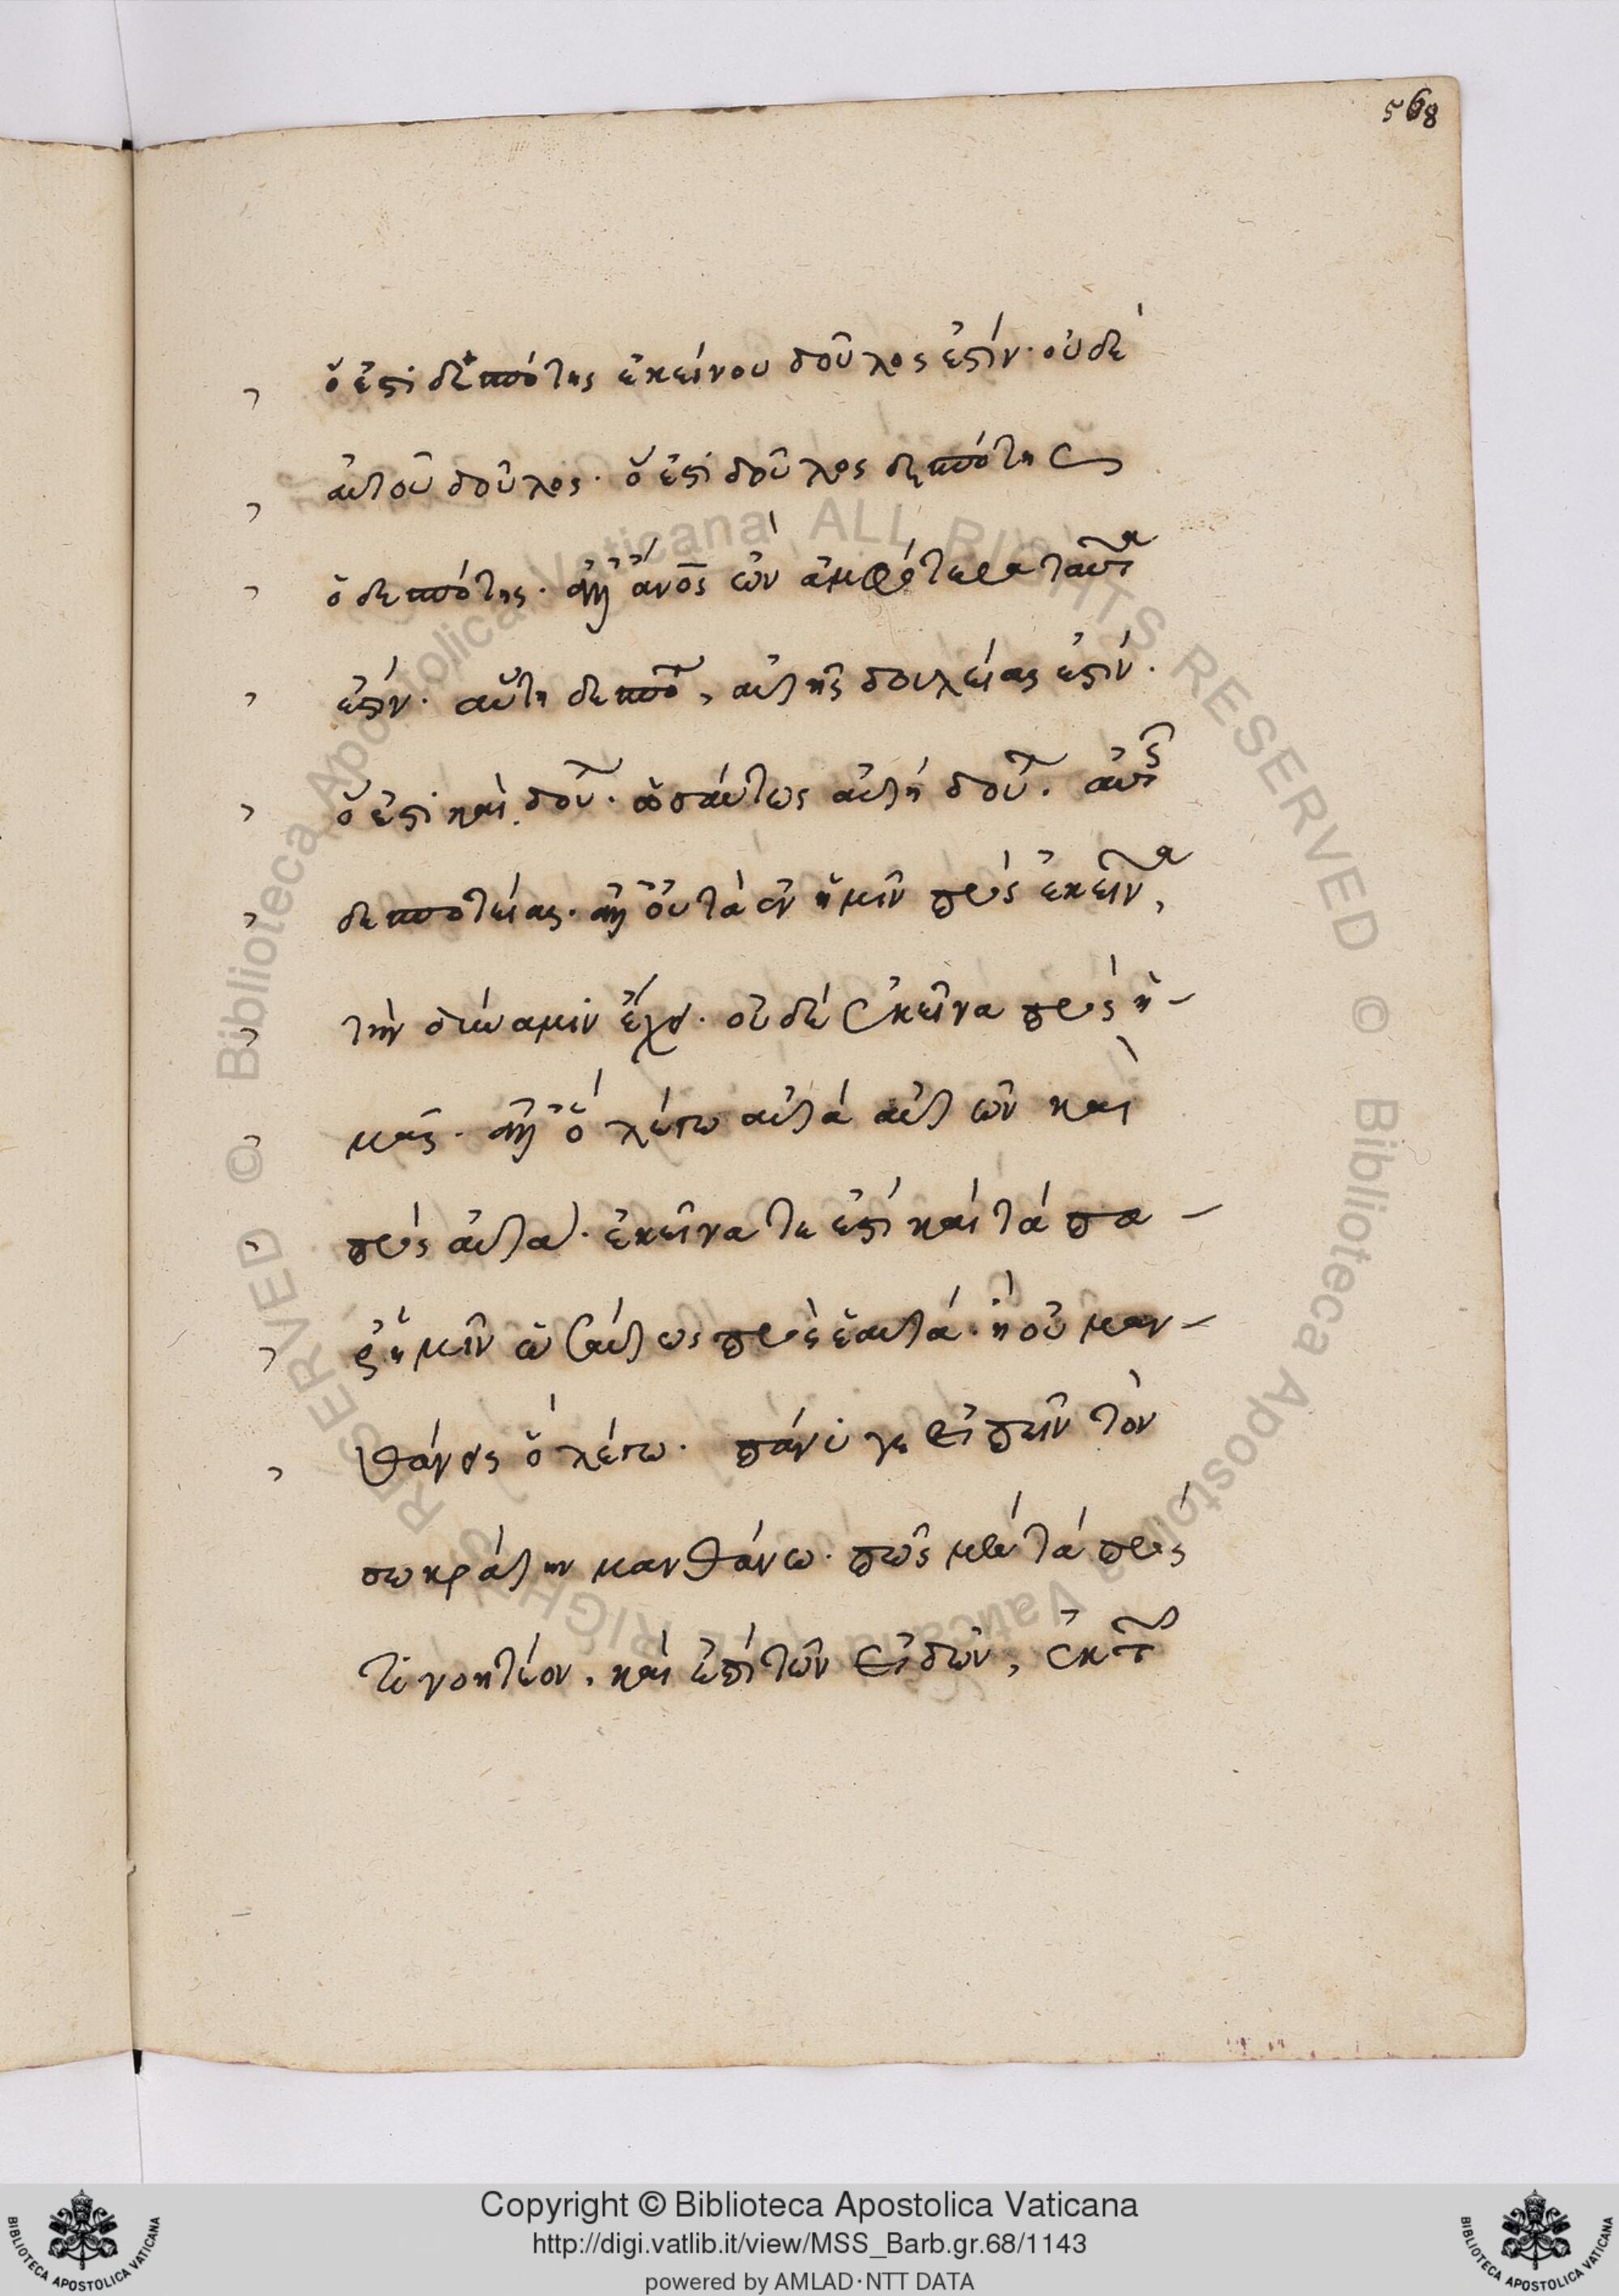 568
ὅ ἐστι δεσπότης ἐκείνου δοῦλος ἐστίν· οὐδὲ
αὐτοῦ δούλος· ὅ ἐστι δοῦλος δεσπότης
ὁ δεσπότης· ἀλλ' ἄνος ὢν ἀμφότερα ταῦτα
ἐστίν· αὕτη δεσπο, αὐτῆς δουλείας ἐστίν·
ὅ ἐστι καὶ δου· ὡσαύτως αὐτὴ δου· αὐτῆς
δεσποτείας· ἀλλ' οὐ τὰ ἐν ἡμῖν πρὸς ἐκεῖνα,
τὴν δύναμιν ἔχει· οὐδὲ ἐκεῖνα πρὸς ἡ-
μᾶς· ἀλλ' ὃ λέγω αὐτὰ αὑτῶν καὶ
πρὸς αὑτὰ· ἐκεῖνα τε ἐστὶ καὶ τὰ πα-
ρ' ἡμῖν ὡσαύτως πρὸς ἑαυτά· ἢ οὐ μαν-
θάνεις ὃ λέγω· πάνυ γε εἰπεῖν τὸν
σωκράτην μανθάνω· πῶς μὲν τὰ πρός
τι νοητέον, καὶ ἐπὶ τῶν εἰδῶν, ἐκ τῶν
Copyright © Biblioteca Apostolica Vaticana
http://digi.vatlib.it/view/MSS_Barb.gr.68/1143
powered by AMLAD·NTT DATA
© Biblioteca Apostolica Vaticana ALL RIGHTS RESERVED
© Biblioteca Apostolica Vaticana ALL RIGHTS RESERVED
BIBLIOTECA APOSTOLICA VATICANA
BIBLIOTECA APOSTOLICA VATICANA